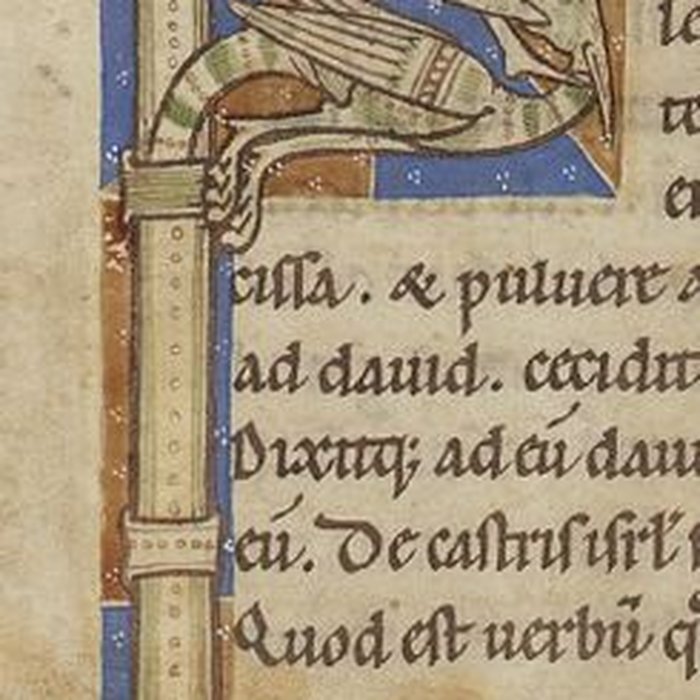 cissa. & puluere
ad dauid. cecidit
Dixitq; ad eū dau
eū. De castris isrl̄
Quod est uerbū q